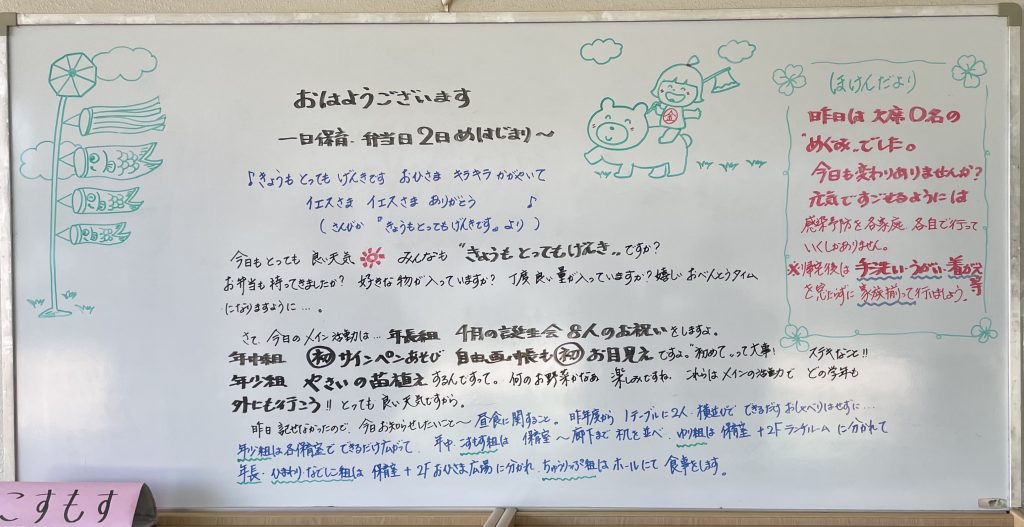 おはようございます
一日保育．弁当日２日めはじまり〜
♪きょうも とっても げんきです おひさま キラキラ かがやいて
イエスさま イエスさま ありがとう ♪
（さんびか 『きょうもとってもげんきです』より）
今日もとても 良い天気 みんなも "きょうもとってもげんき" ですか？
お弁当も持ってきましたか？ 好きな物が入っていますか？ 丁度良い量が入っていますか？ 嬉しい おべんとうタイム
になりますように…。
さて、今日のメイン活動は… 年長組 4月の誕生会 8人のお祝いをしますよ。
年中組 初 サインペンあそび 自由画帳も 初 お目見えですよ。"初めて"って大事！ ステキなこと!!
年少組 やさいの苗植えするんですって。何のお野菜かなあ 楽しみですね。これらはメインの活動で どの学年も
外にも行こう!! とっても良い天気ですから。
昨日 記せなかったので、今日お知らせしたいこと〜 昼食に関すること。昨年度から 1テーブルに2人・横並びで できるだけ おしゃべりはせずに…
年少組は各保育室で できるだけ広がって． 年中・こすもす組は 保育室〜廊下まで 机を並べ・ゆり組は 保育室＋2Fランチルームに分かれて
年長・ひまわり なでしこ組は 保育室＋2Fおひさま広場に分かれ ちゅうりっぷ組はホールにて 食事をします。
ほけんだより
昨日は 欠席０名の
"めぐみ"でした。
今日も変わりありませんか？
元気ですごせるようには
感染予防を各家庭、各自で行って
いくしかありません。
※帰宅後は 手洗い・うがい・着がえ等
を怠らずに 家族揃って行いましょう。
金
こすもす